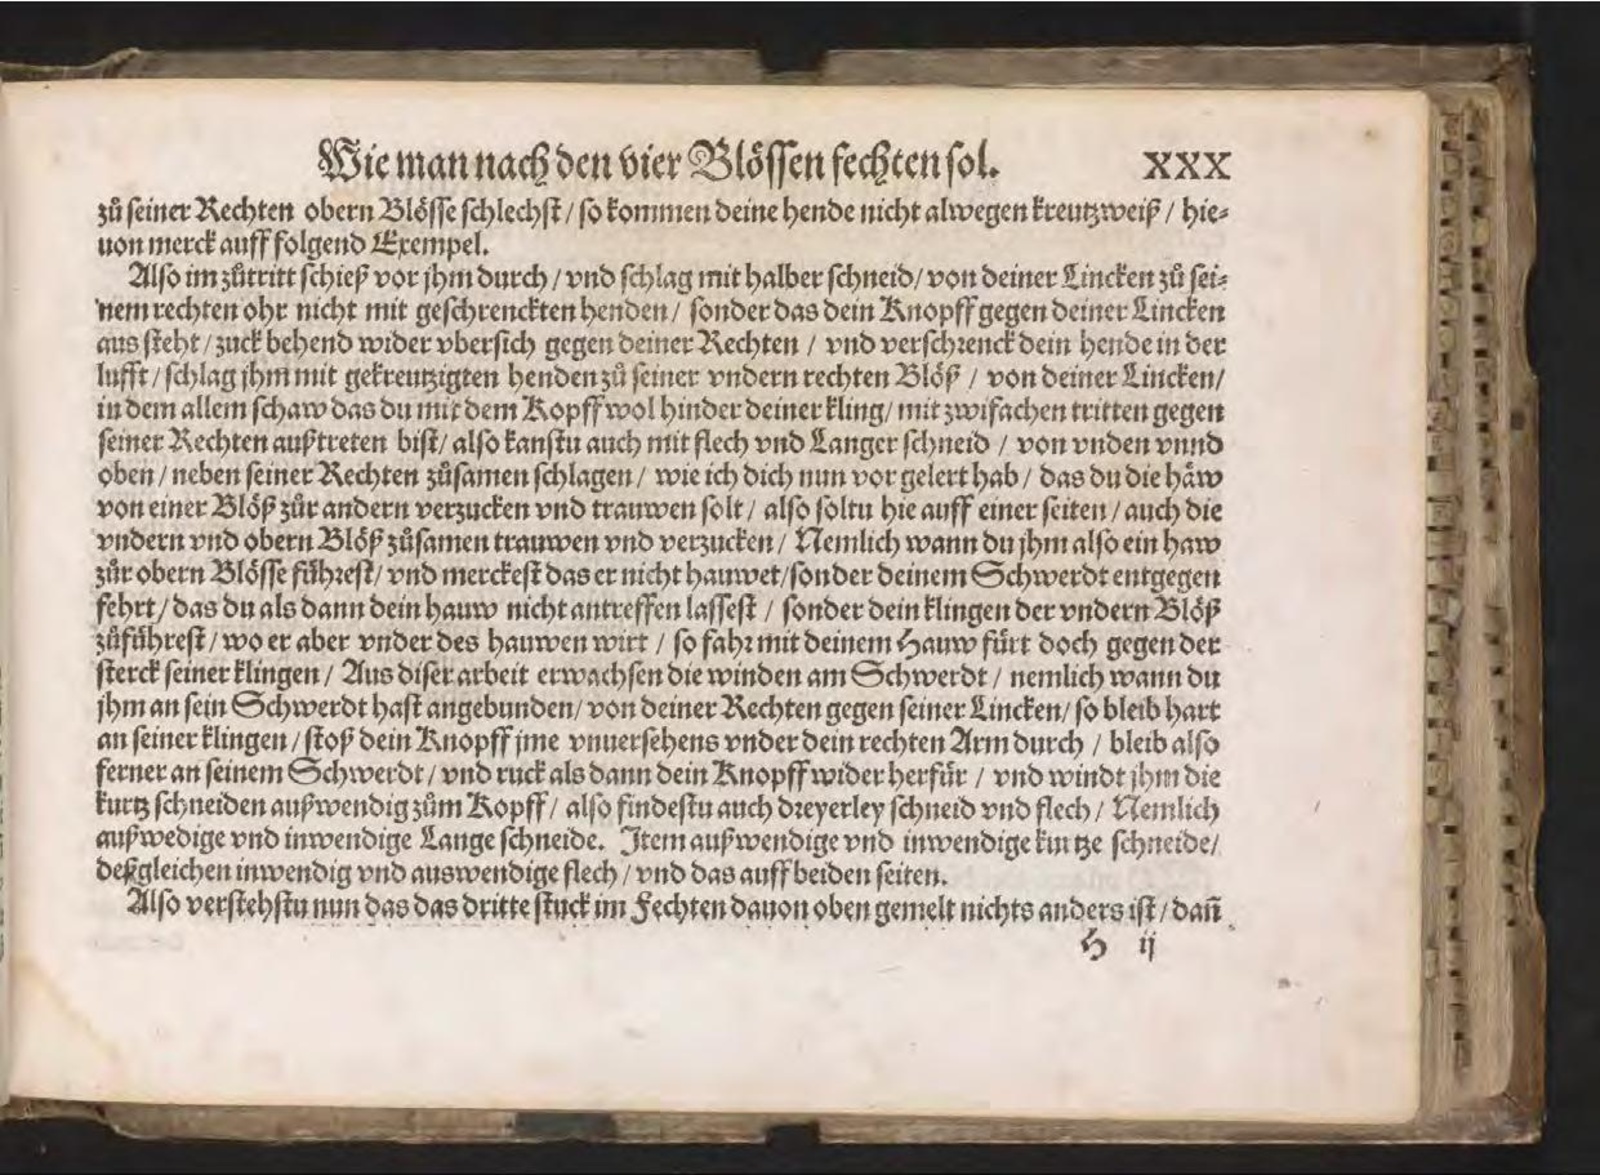 Wie man nach den vier Blössen fechten sol. XXX
zů seiner Rechten obern Blösse schlechst / so kommen deine hende nicht alwegen kreutzweiß / hie-
uon merck auff folgend Exempel.
Also im zůtritt schieß vor jhm durch / vnd schlag mit halber schneid / von deiner Lincken zů sei-
nem rechten ohr nicht mit geschrenckten henden / sonder das dein Knopff gegen deiner Lincken
aus steht / zuck behend wider vbersich gegen deiner Rechten / vnd verschrenck dein hende in der
lufft / schlag jhm mit gekreutzigten henden zů seiner vndern rechten Blöß / von deiner Lincken /
in dem allem schaw das du mit dem Kopff wol hinder deiner kling / mit zwifachen tritten gegen
seiner Rechten außtreten bist / also kanstu auch mit flech vnd Langer schneid / von vnden vnnd
oben / neben seiner Rechten zůsamen schlagen / wie ich dich nun vor gelert hab / das du die häw
von einer Blöß zůr andern verzucken vnd trauwen solt / also soltu hie auff einer seiten / auch die
vndern vnd obern Blöß zůsamen trauwen vnd verzucken / Nemlich wann du jhm also ein haw
zůr obern Blösse führest / vnd merckest das er nicht hauwet / sonder deinem Schwerdt entgegen
fehrt / das du als dann dein hauw nicht antreffen lassest / sonder dein klingen der vndern Blöß
zůführest / wo er aber vnder des hauwen wirt / so fahr mit deinem Hauw fürt doch gegen der
sterck seiner klingen / Aus diser arbeit erwachsen die winden am Schwerdt / nemlich wann du
jhm an sein Schwerdt hast angebunden / von deiner Rechten gegen seiner Lincken / so bleib hart
an seiner klingen / stoß dein Knopff jme vnuersehens vnder dein rechten Arm durch / bleib also
ferner an seinem Schwerdt / vnd ruck als dann dein Knopff wider herfür / vnd windt jhm die
kurtz schneiden außwendig zům Kopff / also findestu auch dreyerley schneid vnd flech / Nemlich
außwedige vnd inwendige Lange schneide. Item außwendige vnd inwendige kurtze schneide /
deßgleichen inwendig vnd auswendige flech / vnd das auff beiden seiten.
Also verstehstu nun das das dritte stuck im Fechten dauon oben gemelt nichts anders ist / dañ
H ij